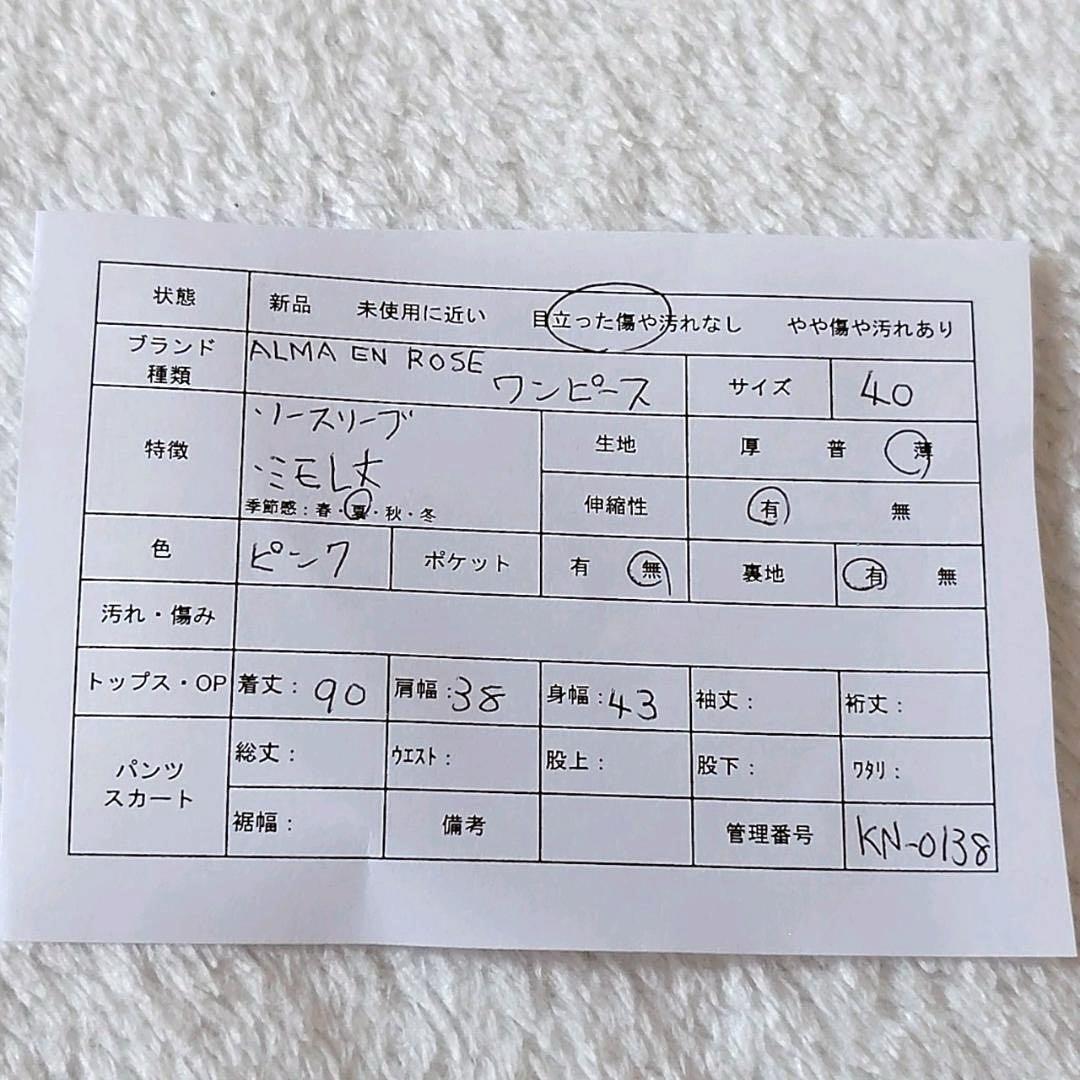 状態 新品 未使用に近い 目立った傷や汚れなし やや傷や汚れあり
ブランド 種類 ALMA EN ROSE ワンピース サイズ 40
特徴 ソースリーブ 生地 厚 普 薄
ミモレ丈 伸縮性 有 無
季節感：春・夏・秋・冬
色 ピンク ポケット 有 無 裏地 有 無
汚れ・傷み
トップス・OP 着丈：90 肩幅：38 身幅：43 袖丈： 裄丈：
パンツ スカート 総丈： ウエスト： 股上： 股下： ワタリ：
裾幅： 備考 管理番号 KN-0138